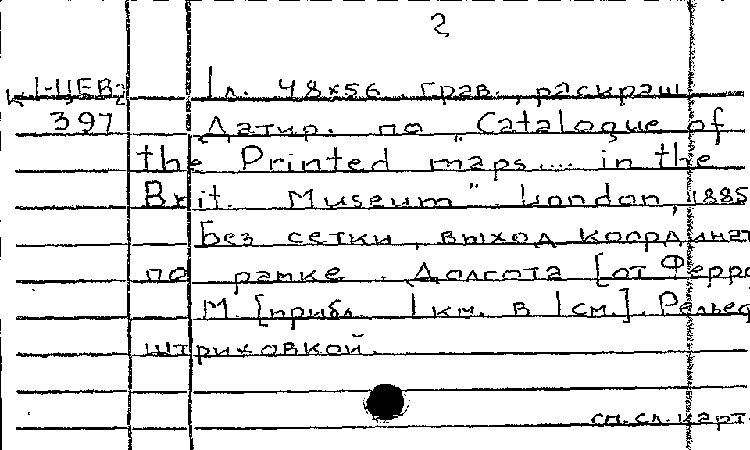 2
К 1-ЦЕВ2 1 л. 48х56. грав., раскраш.
397 Датир. по "Catalogue of
the Printed maps.... in the
Brit. Museum" London, 1885
Без сетки, выход координат
по рамке. Долгота [от Ферро
М. [прибл. 1 км. в 1 см.]. Рельеф
штриховкой.
см.сл.карт.